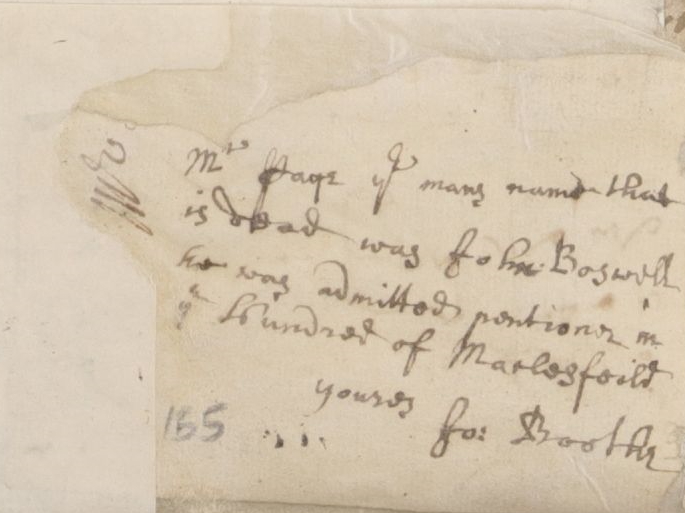 Mrs Page ye mans name that
is dead was John: Boswell
he was admitted pentioner in
ye hundred of Maclesfeild
youres Jo: Booth
155